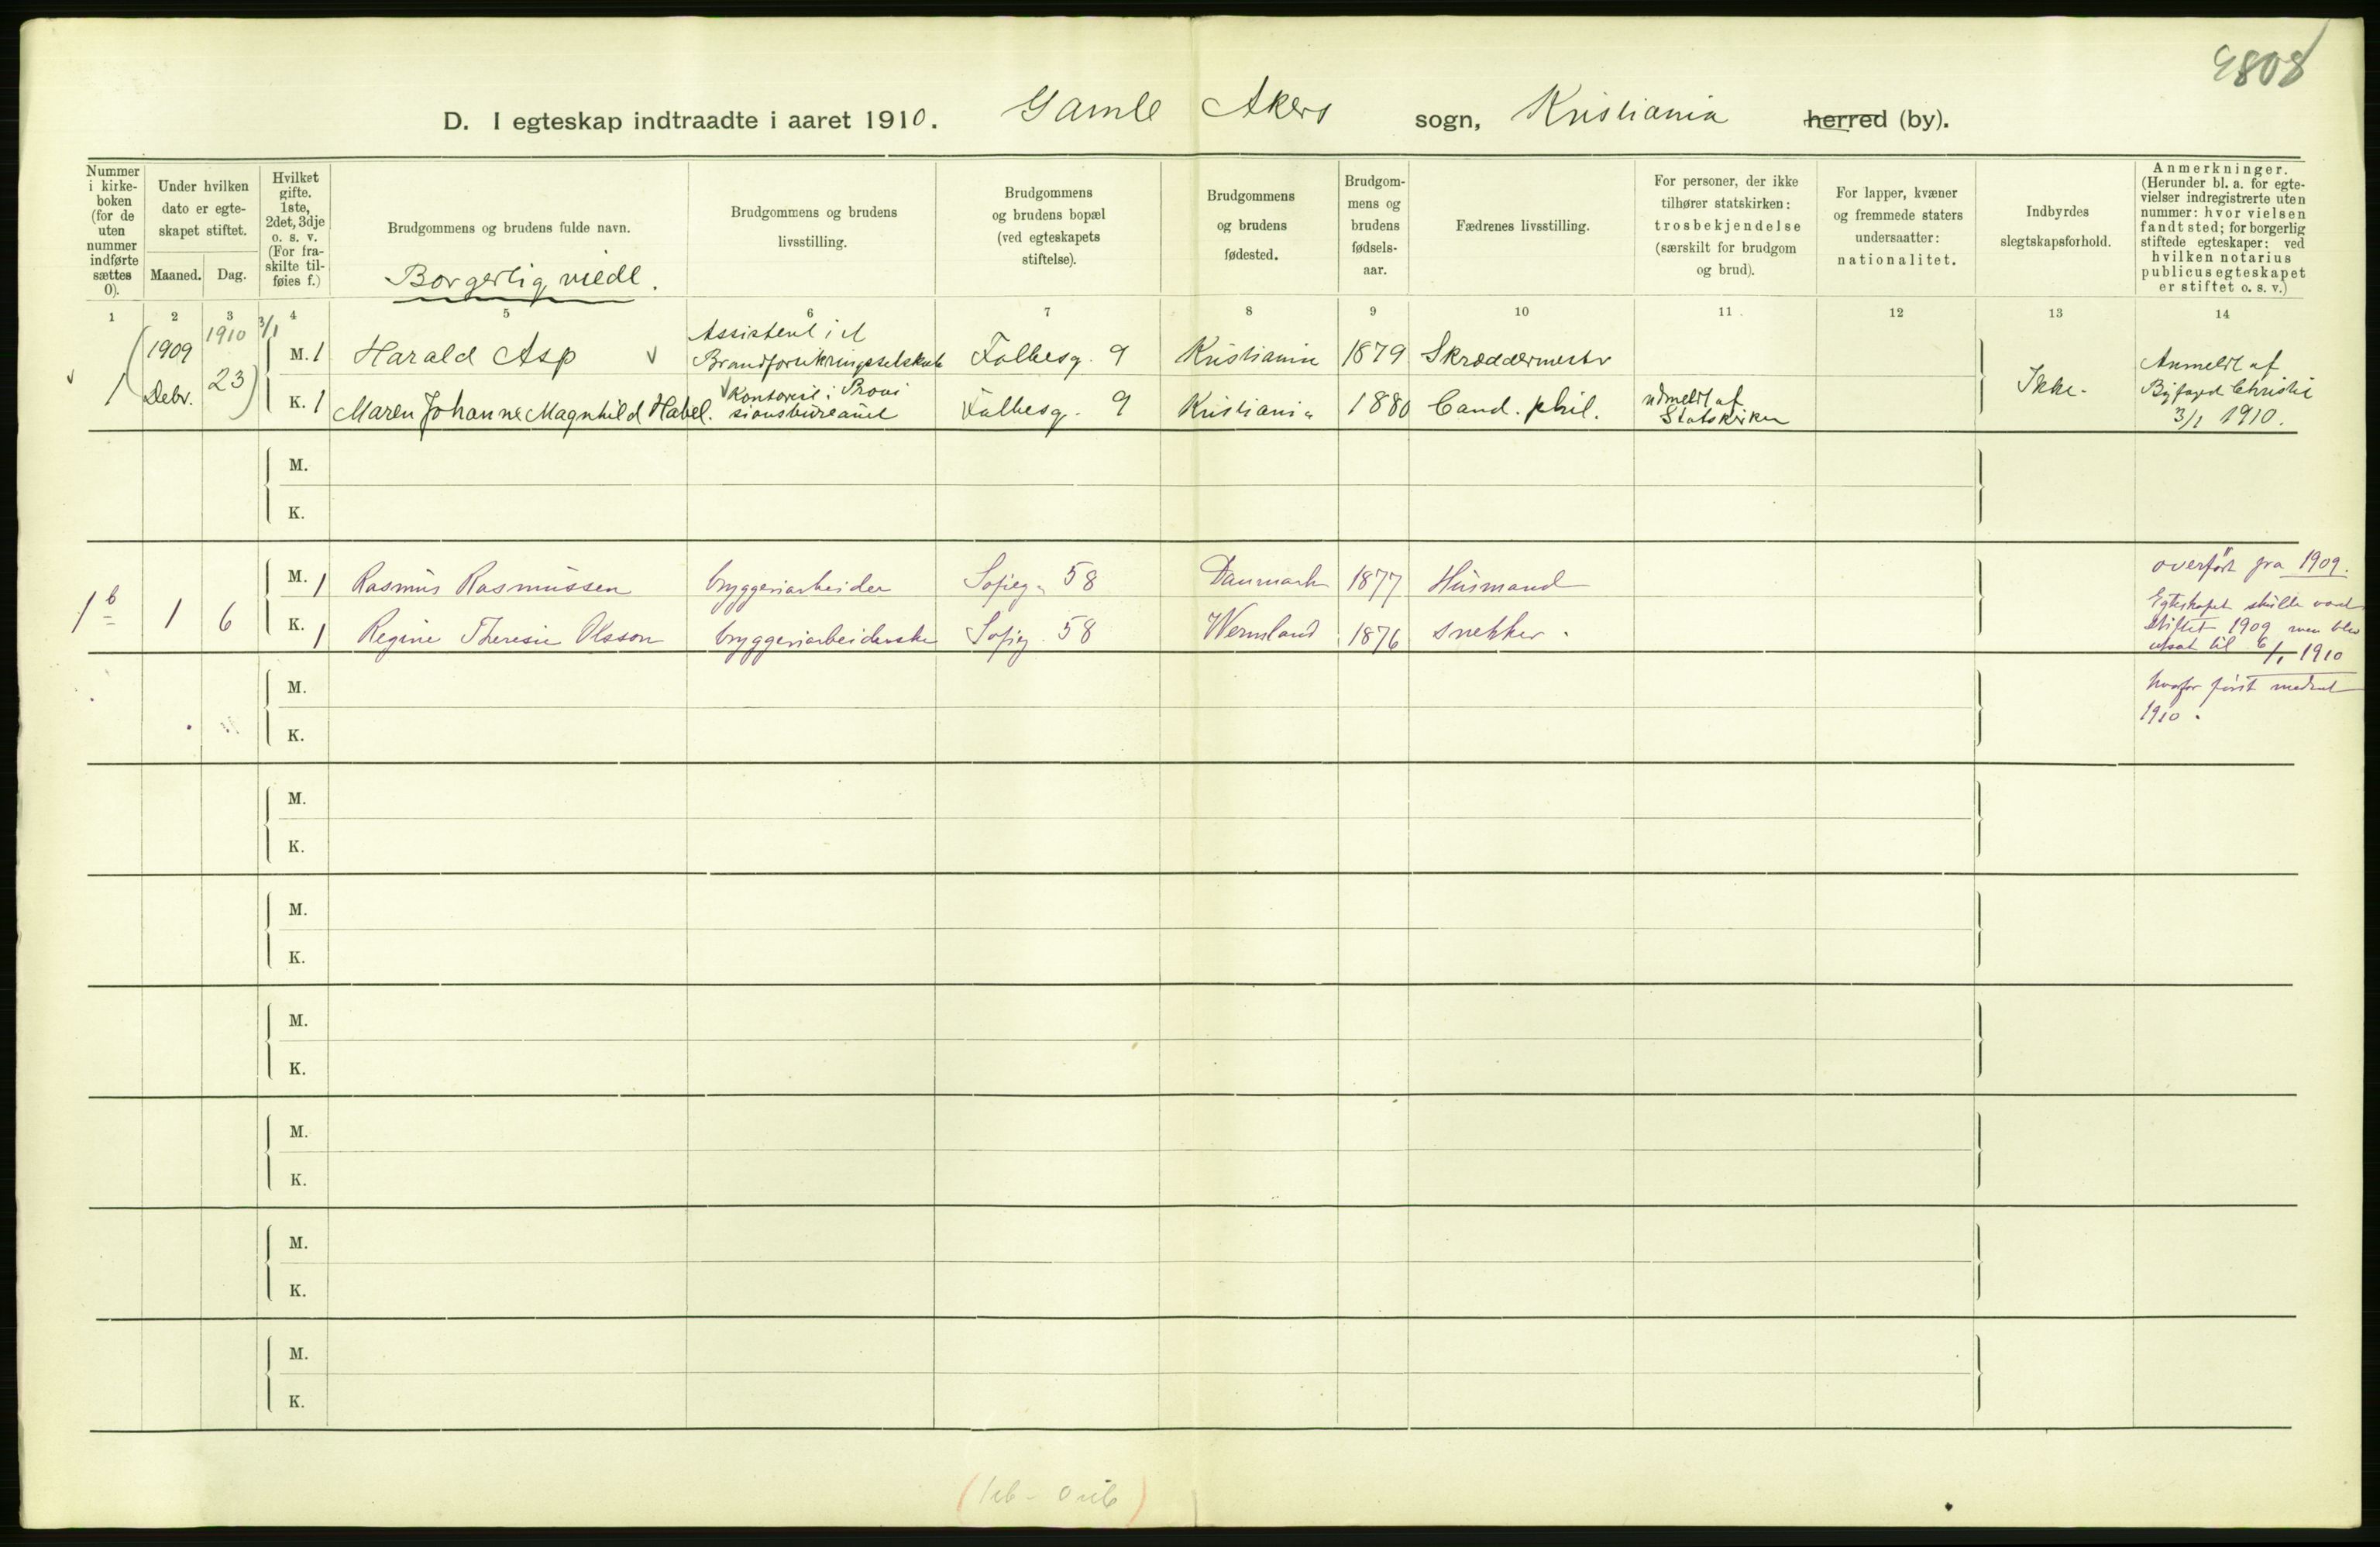 9808
D. I egteskap indtraadte i aaret 1910. Gamle Akers sogn, Kristiania herred (by).
Nummer i kirke- boken (for de uten nummer indførte sættes 0).
Under hvilken dato er egte- skapet stiftet.
Maaned. Dag.
Hvilket gifte. 1ste, 2det, 3dje o. s. v. (For fra- skilte til- føies f.)
Brudgommens og brudens fulde navn.
Borgerlig viede.
Brudgommens og brudens livsstilling.
Brudgommens og brudens bopæl (ved egteskapets stiftelse).
Brudgommens og brudens fødested.
Brudgom- mens og brudens fødsels- aar.
Fædrenes livsstilling.
For personer, der ikke tilhører statskirken: trosbekjendelse (særskilt for brudgom og brud).
For lapper, kvæner og fremmede staters undersaatter: nationalitet.
Indbyrdes slegtskapsforhold.
Anmerkninger. (Herunder bl. a. for egte- vielser indregistrerte uten nummer: hvor vielsen fandt sted; for borgerlig stiftede egteskaper: ved hvilken notarius publicus egteskapet er stiftet o. s. v.)
1 2 3 4 5 6 7 8 9 10 11 12 13 14
1 (1909 Debr. 1910 3/1 23)
M. 1 Harald Asp Assistent i et Brandforsikringsselskab Falbesg. 9 Kristiania 1879 Skræddermester
K. 1 Maren Johanne Magnhild Habel. Kontorist i Provi sionsbureauet Falbesg. 9 Kristiania 1880 Cand. phil. udmeldt af Statskirken
Ikke.
Anmeldt af
Byfoged Christie
3/1 1910.
M.
K.
1b 1 6
M. 1 Rasmus Rasmussen bryggeriarbeider Sofieg. 58 Danmark 1877 Husmand
K. 1 Regine Theresie Olsson bryggeriarbeiderske Sofieg. 58 Wermland 1876 snekker.
overført fra 1909.
Egteskapet skulde vært
stiftet 1909 men blev
utsat til 6/1 1910
hvorfor først medtat
1910.
M.
K.
M.
K.
M.
K.
M.
K.
M.
K.
M.
K.
M.
K.